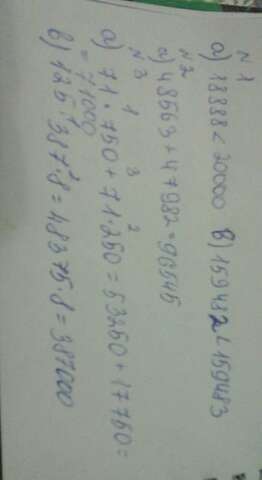 № 1
а) 18888 < 20000 в) 159482 < 159483
№ 2
а) 48563 + 47982 = 96545
№ 3
1 3 2
а) 71 · 750 + 71 · 250 = 53250 + 17750 =
= 71000
1 2
в) 125 · 387 · 8 = 48375 · 8 = 387000